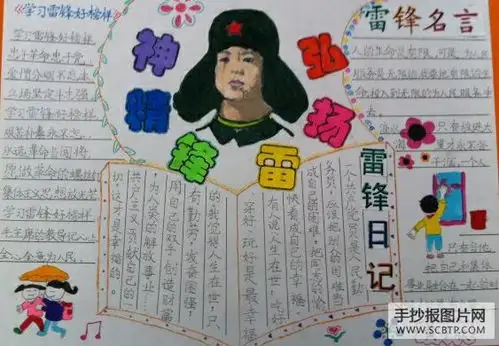 《学习雷锋好榜样》
学习雷锋好榜样
忠于革命忠于党
爱憎分明不忘本
立场坚定斗志强
学习雷锋好榜样
艰苦朴素永不忘
愿做革命的螺丝
集体主义思想放光芒
学习雷锋好榜样
毛主席的教导记心上
全心全意为人民
弘扬
雷锋
精神
雷锋名言
人的生命是有限的,可是,为人民
服务是无限的,我要把有限的生
命,投入到无限的为人民服务中
去。
雷锋日记
一个共产党员是人民勤
务员,应该把别人的困难当
成自己的困难,把同志的愉
快看成自己的幸福
有人说人生在世,吃好
穿好,玩好是最幸福
的我觉得人生在世,只
有勤劳,发奋图强
用自己的双手创造财富
为人类的解放事业——
共产主义贡献自己的一
切,这才是幸福的。
手抄报图片网
WWW.SCBTP.COM